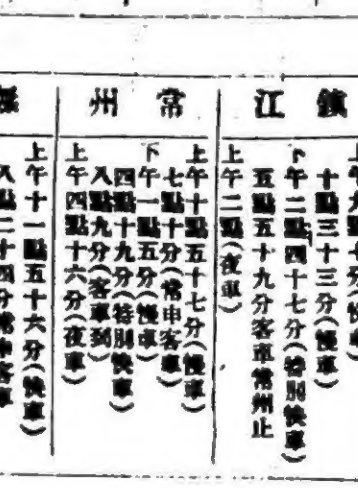 鎮江
上午九點七分(快車)
十點三十三分(慢車)
下午二點四十七分(特別快車)
五點五十九分客車常州止
上午二點(夜車)
常州
上午十點五十七分(慢車)
七點十分(常申客車)
下午一點五分(慢車)
四點十九分(特別快車)
八點九分(客車到)
上午四點十六分(夜車)
上午十一點五十六分(快車)
八點二十四分常申客車